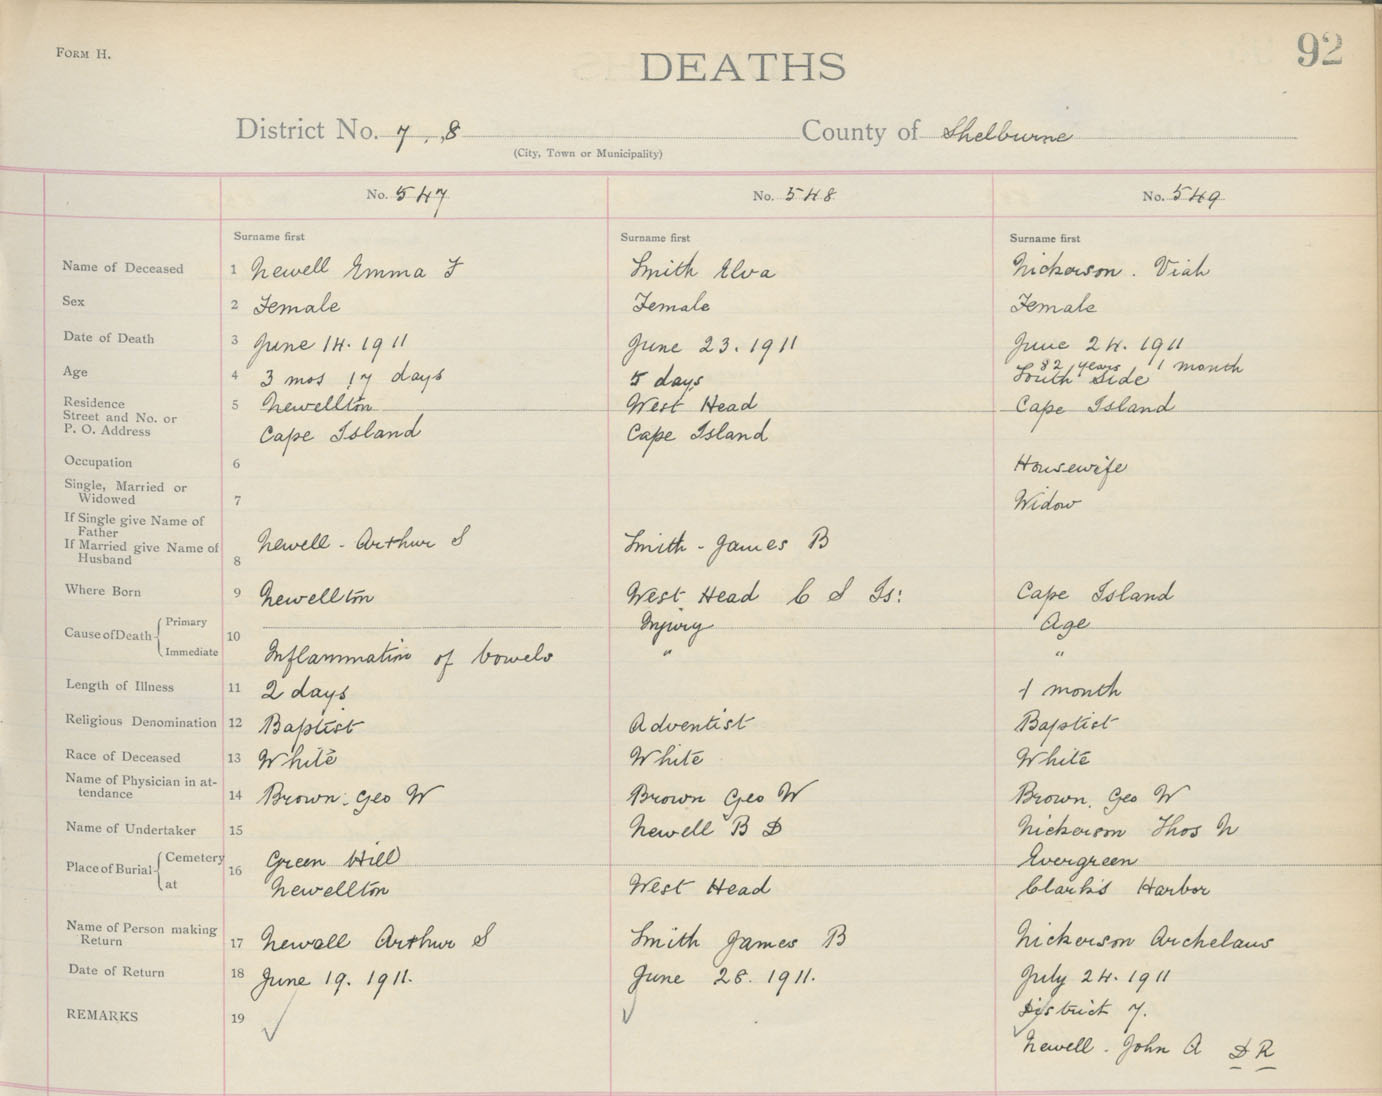 FORM H.
DEATHS
92
District No. 7, 8 County of Shelburne
(City, Town or Municipality)
No. 547 No. 548 No. 549
Surname first Surname first Surname first
Name of Deceased 1 Newell Emma F Smith Elva Nickerson. Viah
Sex 2 Female Female Female
Date of Death 3 June 14. 1911 June 23. 1911 June 24. 1911
Age 4 3 mos 17 days 5 days 82 years 1 month
South Side
Residence 5 Newellton West Head Cape Island
Street and No. or
P. O. Address Cape Island Cape Island
Occupation 6 Housewife
Single, Married or
Widowed 7 Widow
If Single give Name of
Father
If Married give Name of Newell - Arthur S Smith - James B
Husband 8
Where Born 9 Newellton West Head C S Is: Cape Island
Cause of Death Primary 10 Injury Age
Immediate Inflammation of bowels " "
Length of Illness 11 2 days 1 month
Religious Denomination 12 Baptist Adventist Baptist
Race of Deceased 13 White White White
Name of Physician in at-
tendance 14 Brown. Geo W Brown Geo W Brown. Geo W
Name of Undertaker 15 Newell B D Nickerson Thos N
Place of Burial Cemetery 16 Green Hill Evergreen
at Newellton West Head Clark's Harbor
Name of Person making
Return 17 Newall Arthur S Smith James B Nickerson Archelaus
Date of Return 18 June 19. 1911. June 28. 1911. July 24. 1911
REMARKS 19 District 7.
Newell - John A D R